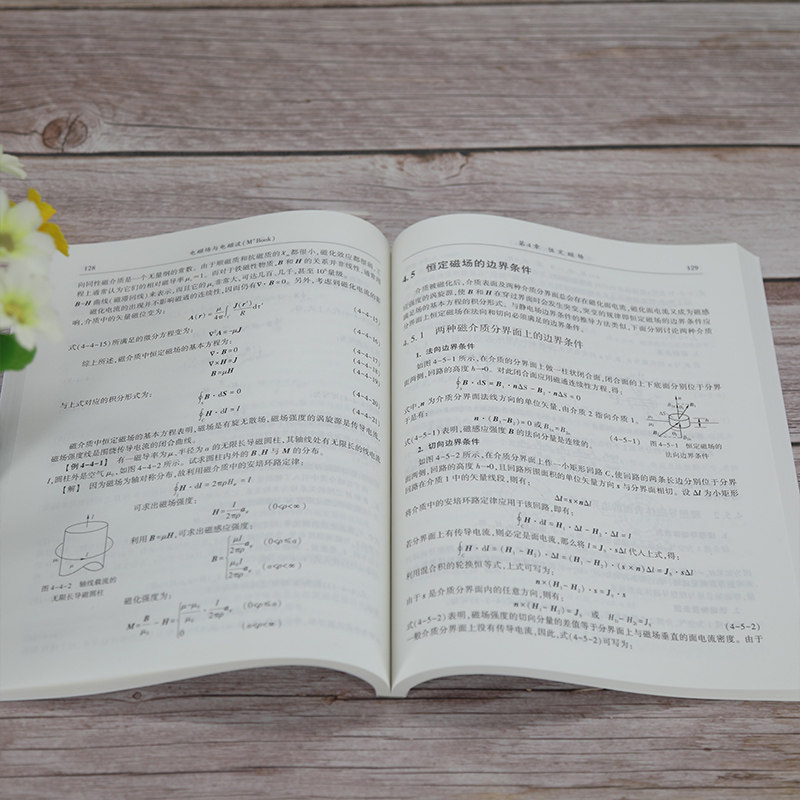 128
电磁场与电磁波(M⁺Book)
向同性磁介质是一个无量纲的常数。由于顺磁质和抗磁质的χₘ都很小,磁化效应都很弱,工
程上通常认为它们的相对磁导率μᵣ=1。而对于铁磁性物质,B和H的关系并非线性,通常用
B-H曲线(磁滞回线)来表示,而且它的μᵣ非常大,可达几百、几千,甚至10⁶量级。
磁化电流的出现并不影响磁通的连续性,因而仍有∇·B=0。另外,考虑到磁化电流的影
响,介质中的矢量磁位变为:
A(r)=μ/4π∫J(r')/R dτ' (4-4-15)
式(4-4-15)所满足的微分方程变为:
∇²A=-μJ (4-4-16)
综上所述,磁介质中恒定磁场的基本方程为:
∇·B=0 (4-4-17)
∇×H=J (4-4-18)
B=μH (4-4-19)
与上式对应的积分形式为:
∮B·dS=0 (4-4-20)
∮H·dl=I (4-4-21)
磁介质中恒定磁场的基本方程表明,磁场是有旋无散场,磁场强度的涡旋源是传导电流,
磁场强度线是围绕传导电流的闭合曲线。
【例4-4-1】 有一磁导率为μ、半径为a的无限长导磁圆柱,其轴线处有无限长的线电流
I,圆柱外是空气μ₀,如图4-4-2所示。试求圆柱内外的B、H与M的分布。
【解】 因为磁场为轴对称分布,故利用磁介质中的安培环路定律:
∮H·dl=2πρHφ=I
可求出磁场强度:
H=I/2πρ aφ (0<ρ<∞)
利用B=μH,可求出磁感应强度:
B={μI/2πρ aφ (0<ρ≤a)
μ₀I/2πρ aφ (a<ρ<∞)
图4-4-2 轴线载流的
无限长导磁圆柱
磁化强度为:
M=B/μ₀-H={μ-μ₀/μ₀ I/2πρ aφ (0<ρ≤a)
0 (a<ρ<∞)
第4章 恒定磁场
129
4.5 恒定磁场的边界条件
介质被磁化后,介质表面及两种介质分界面总会有在磁化面电流,磁化面电流又成为磁感
应强度的涡旋源,使B和H在穿过界面时会发生突变,突变的规律即恒定磁场的边界条件应
满足场的基本方程的积分形式。与静电场边界条件的推导方法类似,下面分别讨论两种介质
分界面上恒定磁场在法向和切向必须满足的边界条件。
4.5.1 两种磁介质分界面上的边界条件
1. 法向边界条件
如图4-5-1所示,在介质的分界面上做一柱状闭合面,闭合面的上下底面分别位于分界
面两侧,回路的高度h→0。对此闭合面应用磁通连续性方程,得:
∮B·dS=B₁·nΔS-B₂·nΔS=0
式中,n为介质分界面法线方向的单位矢量,由介质2指向介质1。
于是有:
n·(B₁-B₂)=0 或 B₁ₙ=B₂ₙ (4-5-1)
式(4-5-1)表明,磁感应强度B的法向分量是连续的。
图4-5-1 恒定磁场的
法向边界条件
2. 切向边界条件
如图4-5-2所示,在介质分界面上作一小矩形回路C,使回路的两条长边分别位于分界
面两侧,回路的高度h→0,且回路所围面积的单位矢量方向s与分界面相切。设Δl为小矩形
回路在介质1中的矢量线段,则有:
Δl=s×nΔl
将介质中的安培环路定律应用于该回路,即有:
∮H·dl=H₁·Δl-H₂·Δl=I
若分界面上有传导电流,则必定是面电流,那么将I=Jₛ·sΔl代入上式,得:
∮H·dl=(H₁-H₂)·Δl=(H₁-H₂)·(s×n)Δl=Jₛ·sΔl
利用混合积的轮换恒等式,上式可写为:
n×(H₁-H₂)·s=Jₛ·s
由于s是介质分界面内的任意方向,则有:
n×(H₁-H₂)=Jₛ 或 H₁ₜ-H₂ₜ=Jₛ (4-5-2)
式(4-5-2)表明,磁场强度的切向分量的差值等于分界面上与磁场垂直的面电流密度。由于
一般介质分界面上没有传导电流,因此,式(4-5-2)可写为: